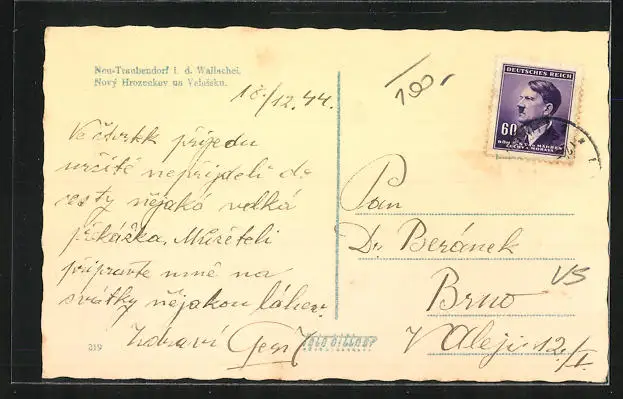 Neu-Traubendorf i. d. Wallachei.
Nový Hrozenkov na Valašsku.
18/12.44.
Ve čtvrtek přijedu
určitě nepřijdeli do
cesty nějaká velká
překážka. Můžeteli
připravte mně na
svátky nějakou láhev.
Zdraví
219
100
DEUTSCHES REICH
60
BÖHMEN U. MÄHREN
ČECHY A MORAVA
Pan
Dr. Beránek
Brno
V Aleji 12/I.
VS